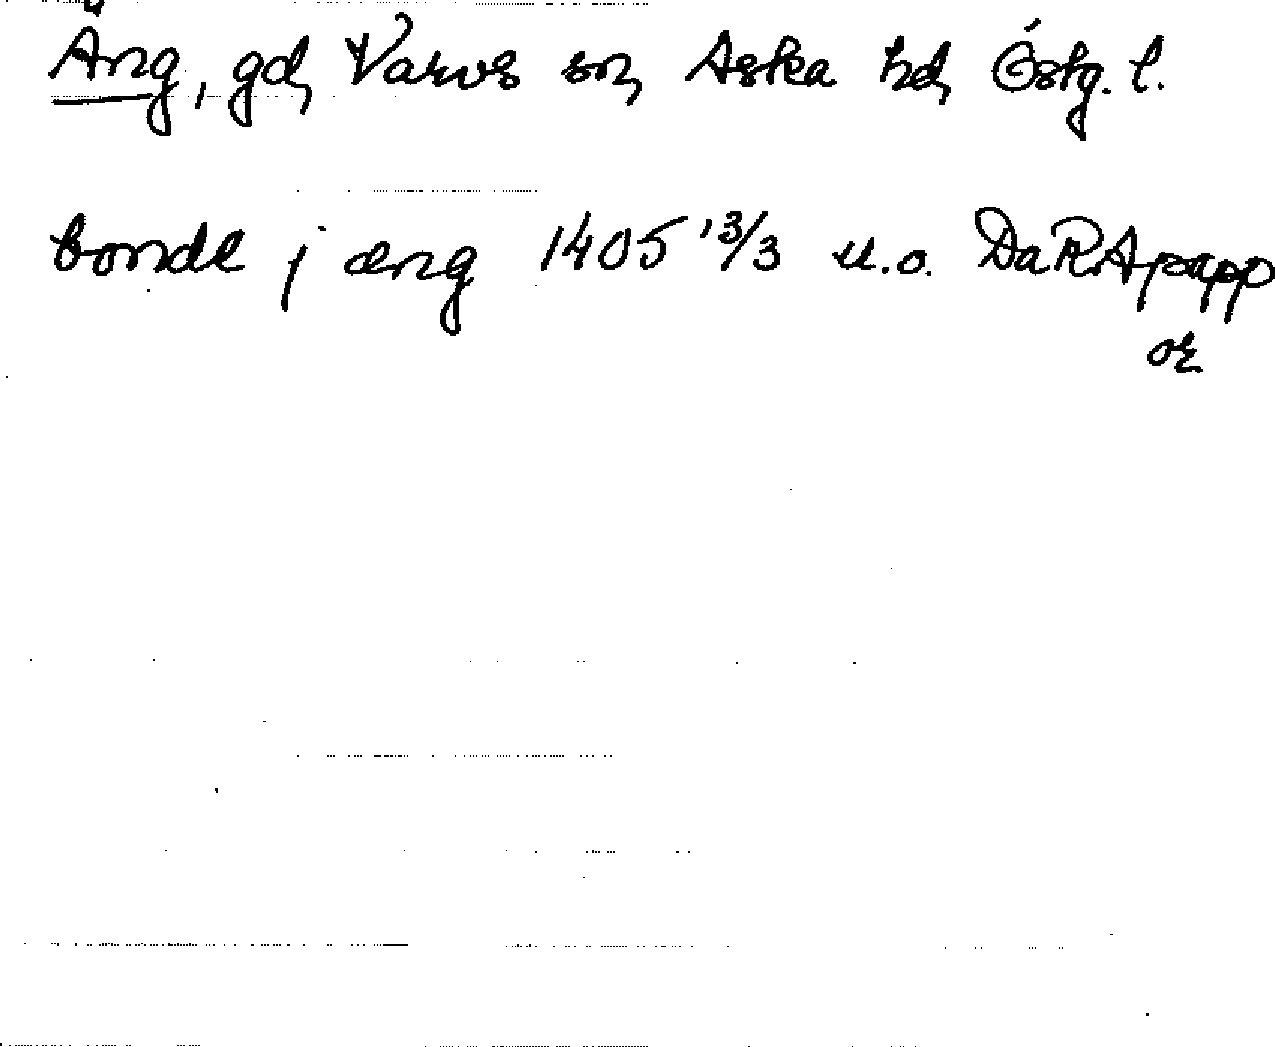 Äng, gd, Varvs sn, Aska hd, Östg. l.
bonde j æng 1405 13/3 u.o. DaRApapp
or